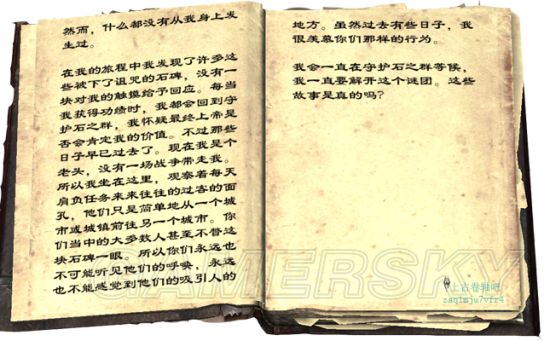 然而，什么都没有从我身上发
生过。
在我的旅程中我发现了许多这
些被下了诅咒的石碑，没有一
块对我的触摸给予回应。每当
我获得功绩时，我都会回到守
护石之群，我怀疑最终上帝是
否会肯定我的价值。不过那些
日子早已过去了。现在我是个
老头，没有一场战争带走我。
所以我坐在这里，观察着每天
肩负任务来来往往的过客的面
孔，他们只是简单地从一个城
市或城镇前往另一个城市。你
们当中的大多数人甚至不瞥这
块石碑一眼。所以你们永远也
不可能听见他们的呼唤，永远
也不能感觉到他们的吸引人的
地方。虽然过去有些日子，我
很羡慕你们那样的行为。
我会一直在守护石之群等候，
我一直要解开这个谜团。这些
故事是真的吗？
GAMERSKY
上古卷轴吧
zaq1mju7vfr4